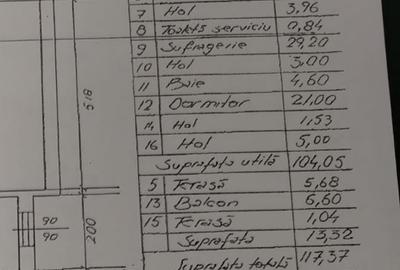 7 Hol 3,96
8 Toaletă serviciu 0,84
9 Sufragerie 29,20
10 Hol 3,00
11 Baie 4,60
12 Dormitor 21,00
14 Hol 1,53
16 Hol 5,00
Suprafața utilă 104,05
5 Terasă 5,68
13 Balcon 6,60
15 Terasă 1,04
Suprafața 13,32
Suprafața totală 117,37
518
90
90
200